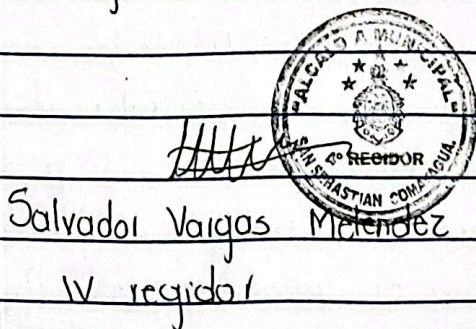 ALCALDIA MUNICIPAL
4º REGIDOR
SAN SEBASTIAN COMAYAGUA
Salvador Vargas Melendez
IV regidor